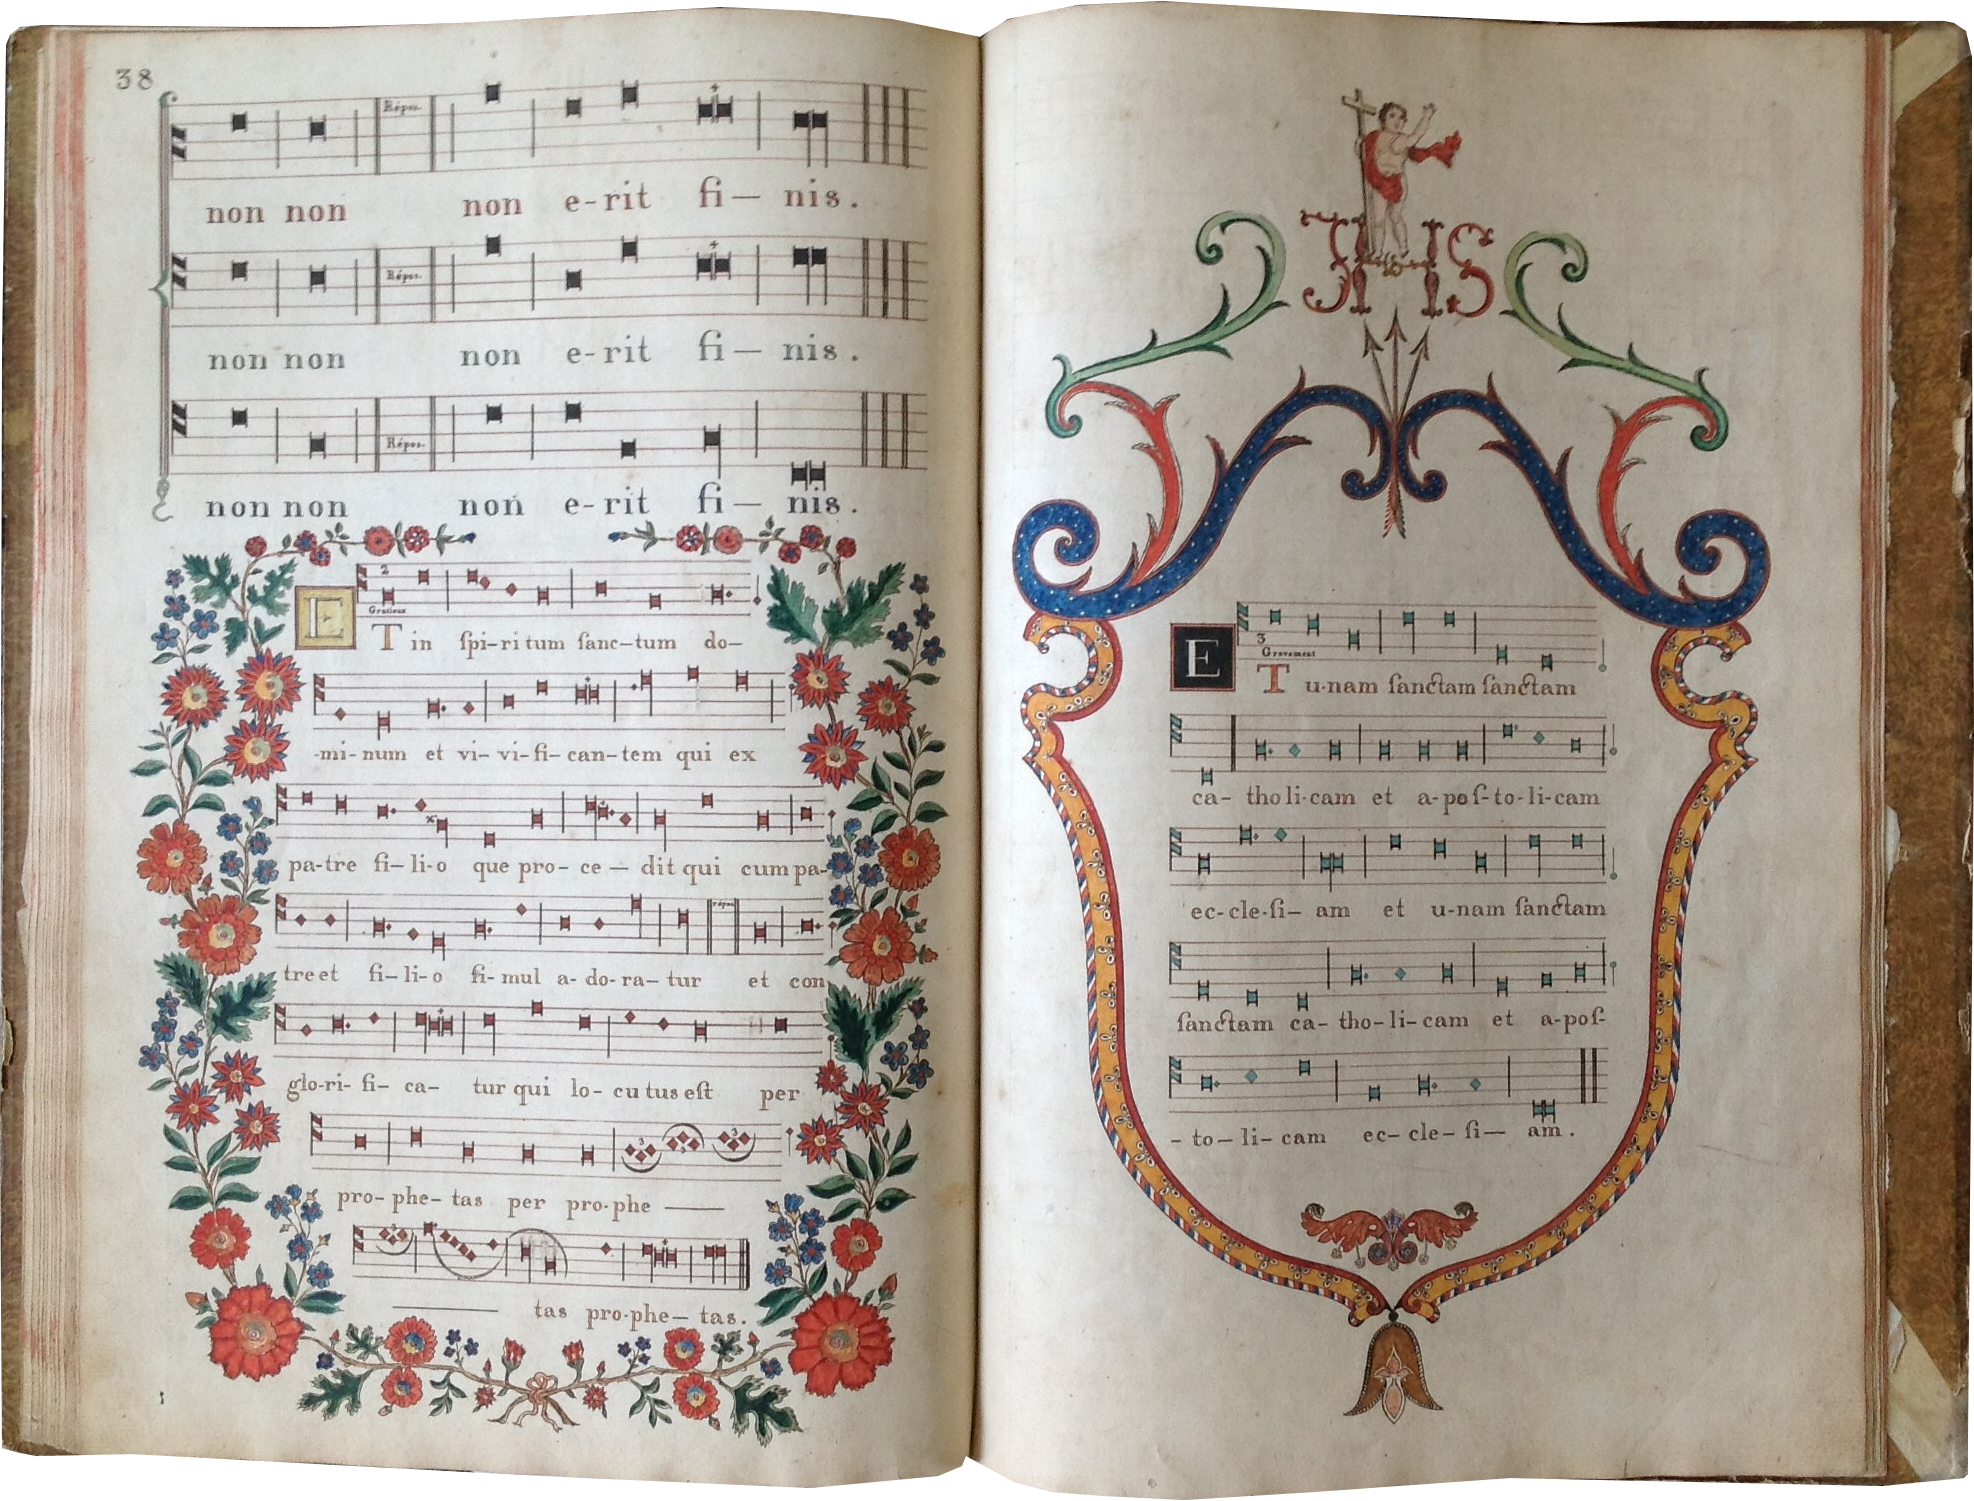 38
Répos.
non non non e-rit fi— nis.
Répos.
non non non e-rit fi— nis.
Répos.
non non non e-rit fi— nis.
2
Gracieux
ET in ſpi-ri tum ſanc-tum do-
-mi-num et vi-vi-fi-can-tem qui ex
pa-tre fi-li-o que pro-ce—dit qui cum pa-
répos
tre et fi-li-o ſi-mul a-do-ra-tur et con
glo-ri-fi-ca-tur qui lo-cu tus eſt per
3 3 3
pro-phe-tas per pro-phe ——
3
—— tas pro-phe-tas.
JHS
3
Gravement
ET u-nam ſanctam ſanctam
ca-tho li-cam et a-poſ-to-li-cam
ec-cle-ſi-am et u-nam ſanctam
ſanctam ca-tho-li-cam et a-poſ-
-to-li-cam ec-cle-ſi—am.